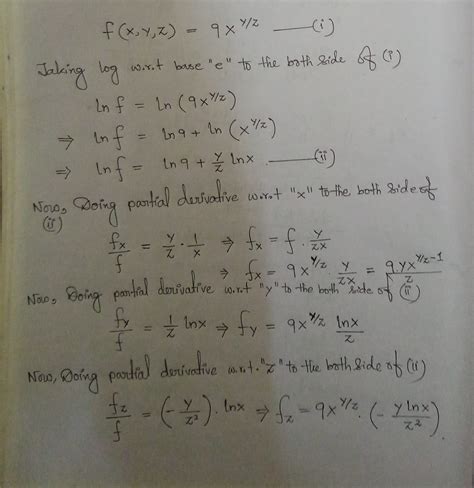 f(x,y,z) = 9x^{y/z} —(i)
Taking log w.r.t base "e" to the both side of (i)
ln f = ln (9x^{y/z})
⇒ ln f = ln 9 + ln (x^{y/z})
⇒ ln f = ln 9 + y/z ln x. —(ii)
Now, Doing partial derivative w.r.t "x" to the both side of
(ii)
f_x/f = y/z · 1/x ⇒ f_x = f · y/zx
⇒ f_x = 9x^{y/z} y/zx = 9yx^{y/z-1}/z
Now, Doing partial derivative w.r.t "y" to the both side of (ii)
f_y/f = 1/z ln x ⇒ f_y = 9x^{y/z} ln x/z
Now, Doing partial derivative w.r.t. "z" to the both side of (ii)
f_z/f = (-y/z²) · ln x ⇒ f_z = 9x^{y/z} · (-y ln x/z²)